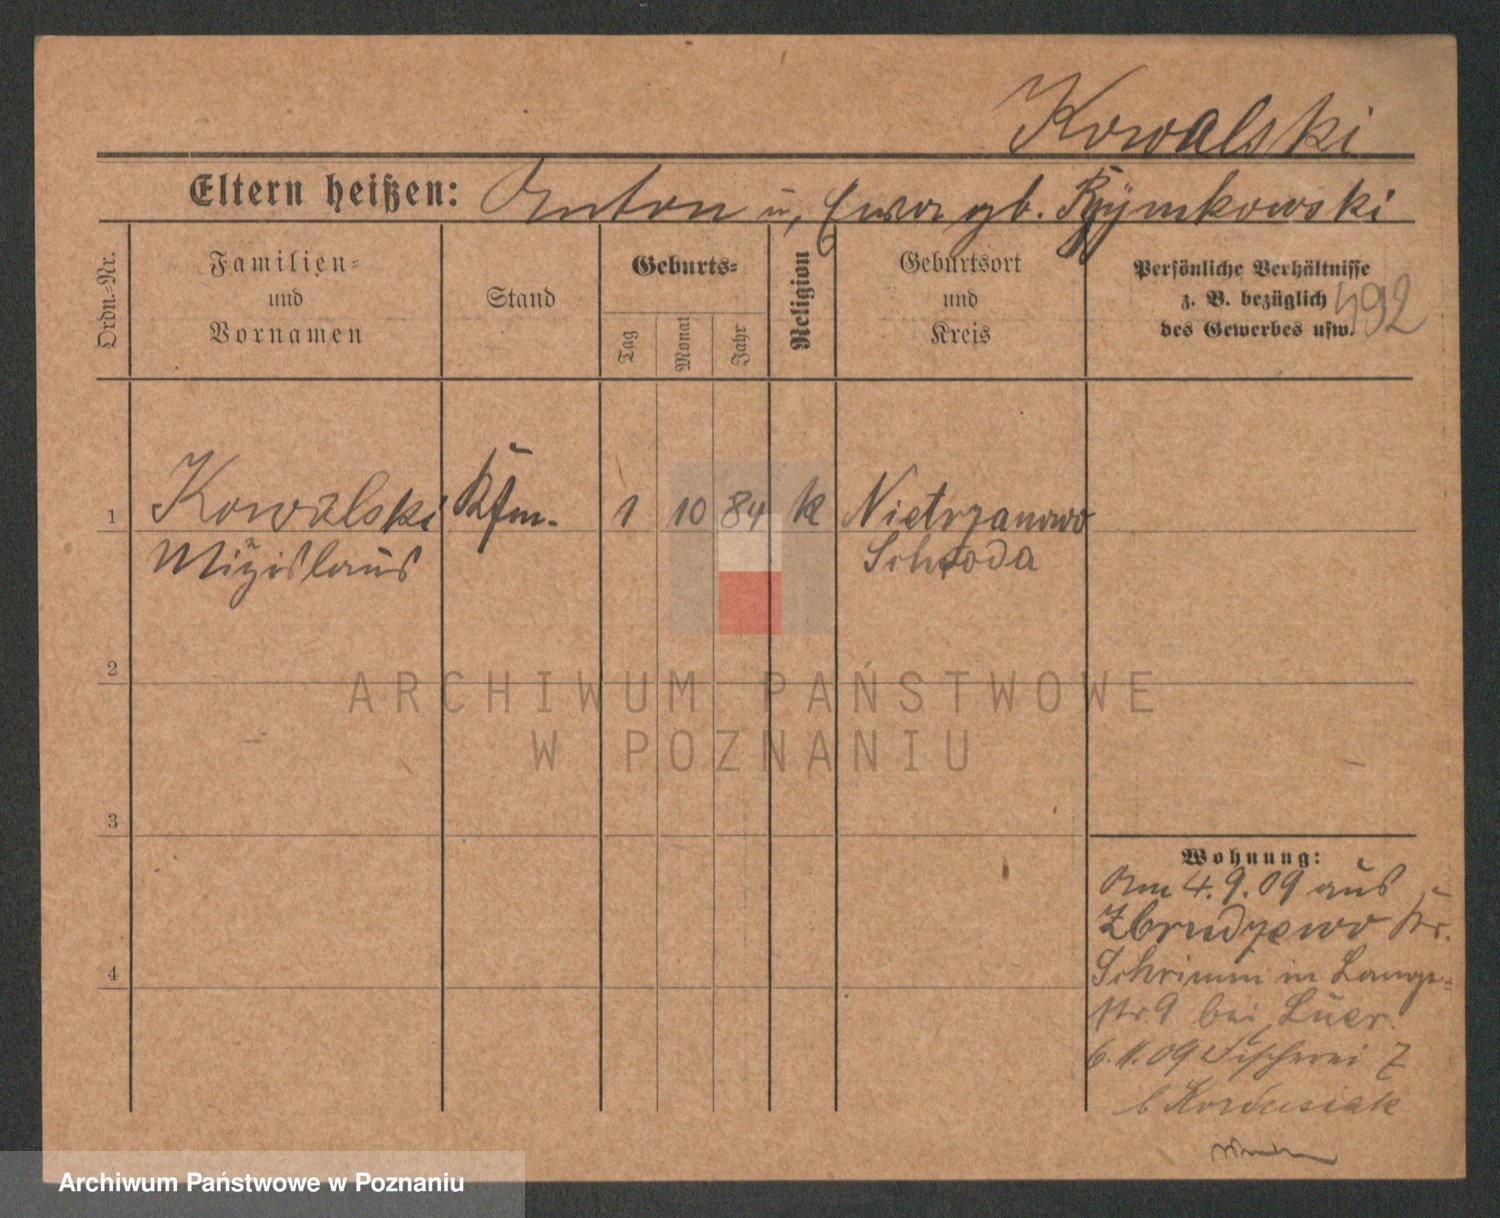 Kowalski
Eltern heißen: Anton u, Ewa gb. Rymkowski
Ordn.-Nr.
Familien-
und
Vornamen
Stand
Geburts-
Tag
Monat
Jahr
Religion
Geburtsort
und
Kreis
Persönliche Verhältnisse
z. B. bezüglich
des Gewerbes usw.
492
1 Kowalski Kfm. 1 10 84 k Nietrzanowo
Mizislaus Schroda
2
3
4
ARCHIWUM PAŃSTWOWE
W POZNANIU
Wohnung:
Am 4.9.09 aus
Zbrudzewo Kr.
Schrimm in Lange-
str. 9 bei Luer.
6.11.09 Fischerei 7
b Kordusiak
Archiwum Państwowe w Poznaniu